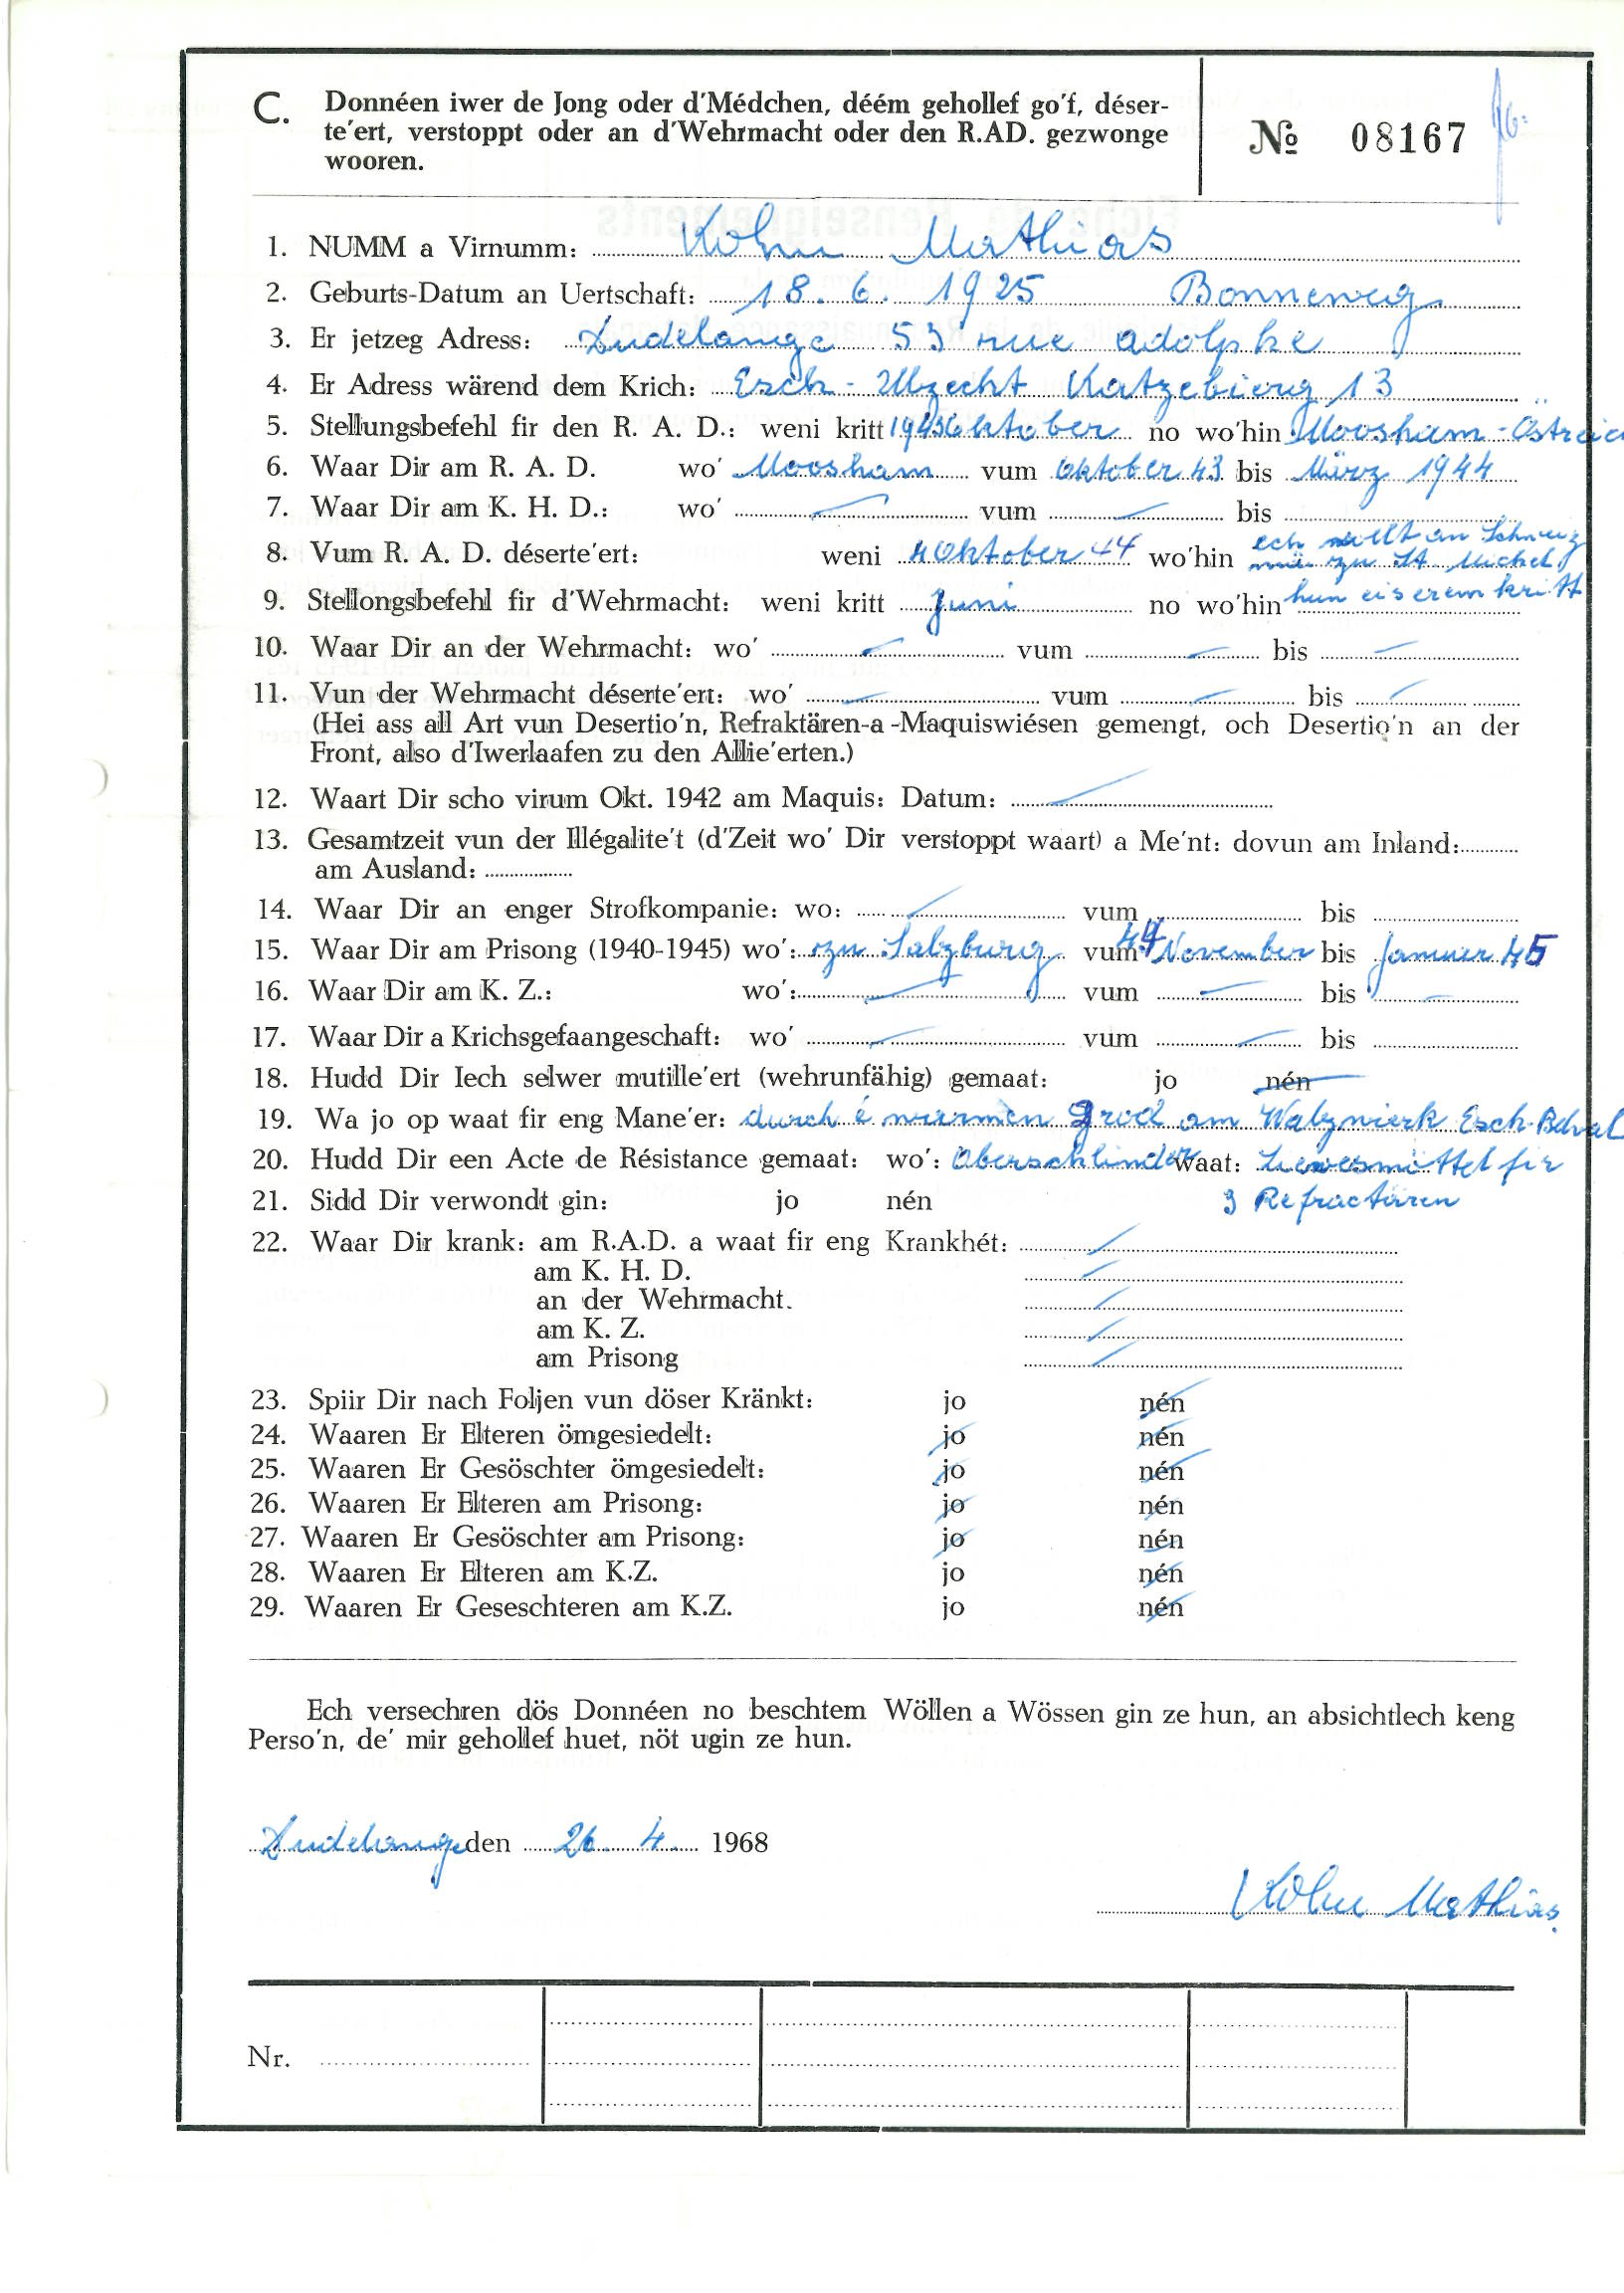 C. Donnéen iwer de Jong oder d'Médchen, déém gehollef go'f, déser-
te'ert, verstoppt oder an d'Wehrmacht oder den R.AD. gezwonge
wooren.
№ 08167
1. NUMM a Virnumm: Kohn Mathias
2. Geburts-Datum an Uertschaft: 18. 6. 1925 Bonneweg
3. Er jetzeg Adress: Dudelange 53 rue adolphe
4. Er Adress wärend dem Krich: Esch-Uelzecht Katzebierg 13
5. Stellungsbefehl fir den R. A. D.: weni kritt 1943 Oktober no wo'hin Moosham-Östreich
6. Waar Dir am R. A. D. wo' Moosham vum Oktober 43 bis März 1944
7. Waar Dir am K. H. D.: wo' vum bis
8. Vum R. A. D. déserte'ert: weni 4 Oktober 44 wo'hin ech wollt an Schweiz
zu St. Michel
9. Stellongsbefehl fir d'Wehrmacht: weni kritt Juni no wo'hin hun eis erem kritt
10. Waar Dir an der Wehrmacht: wo' vum bis
11. Vun der Wehrmacht déserte'ert: wo' vum bis
(Hei ass all Art vun Desertio'n, Refraktären-a -Maquiswiésen gemengt, och Desertio'n an der
Front, also d'Iwerlaafen zu den Allie'erten.)
12. Waart Dir scho virum Okt. 1942 am Maquis: Datum:
13. Gesamtzeit vun der Illégalite't (d'Zeit wo' Dir verstoppt waart) a Me'nt: dovun am Inland:
am Ausland:
14. Waar Dir an enger Strofkompanie: wo: vum bis
15. Waar Dir am Prisong (1940-1945) wo': zu Salzburg vum 44 November bis Januer 45
16. Waar Dir am K. Z.: wo': vum bis
17. Waar Dir a Krichsgefaangeschaft: wo' vum bis
18. Hudd Dir Iech selwer mutille'ert (wehrunfähig) gemaat: jo nén
19. Wa jo op waat fir eng Mane'er: durch é warmen Grod am Walzwierk Esch-Belval
20. Hudd Dir een Acte de Résistance gemaat: wo': Oberschlinder waat: Liewesmöttel fir
21. Sidd Dir verwondt gin: jo nén 3 Refractären
22. Waar Dir krank: am R.A.D. a waat fir eng Krankhét:
am K. H. D.
an der Wehrmacht.
am K. Z.
am Prisong
23. Spiir Dir nach Foljen vun döser Kränkt: jo nén
24. Waaren Er Elteren ömgesiedelt: jo nén
25. Waaren Er Gesöschter ömgesiedelt: jo nén
26. Waaren Er Elteren am Prisong: jo nén
27. Waaren Er Gesöschter am Prisong: jo nén
28. Waaren Er Elteren am K.Z. jo nén
29. Waaren Er Geseschteren am K.Z. jo nén
Ech versechren dös Donnéen no beschtem Wöllen a Wössen gin ze hun, an absichtlech keng
Perso'n, de' mir gehollef huet, nöt ugin ze hun.
Dudelange den 26. 4. 1968
Kohn Mathias
Nr.